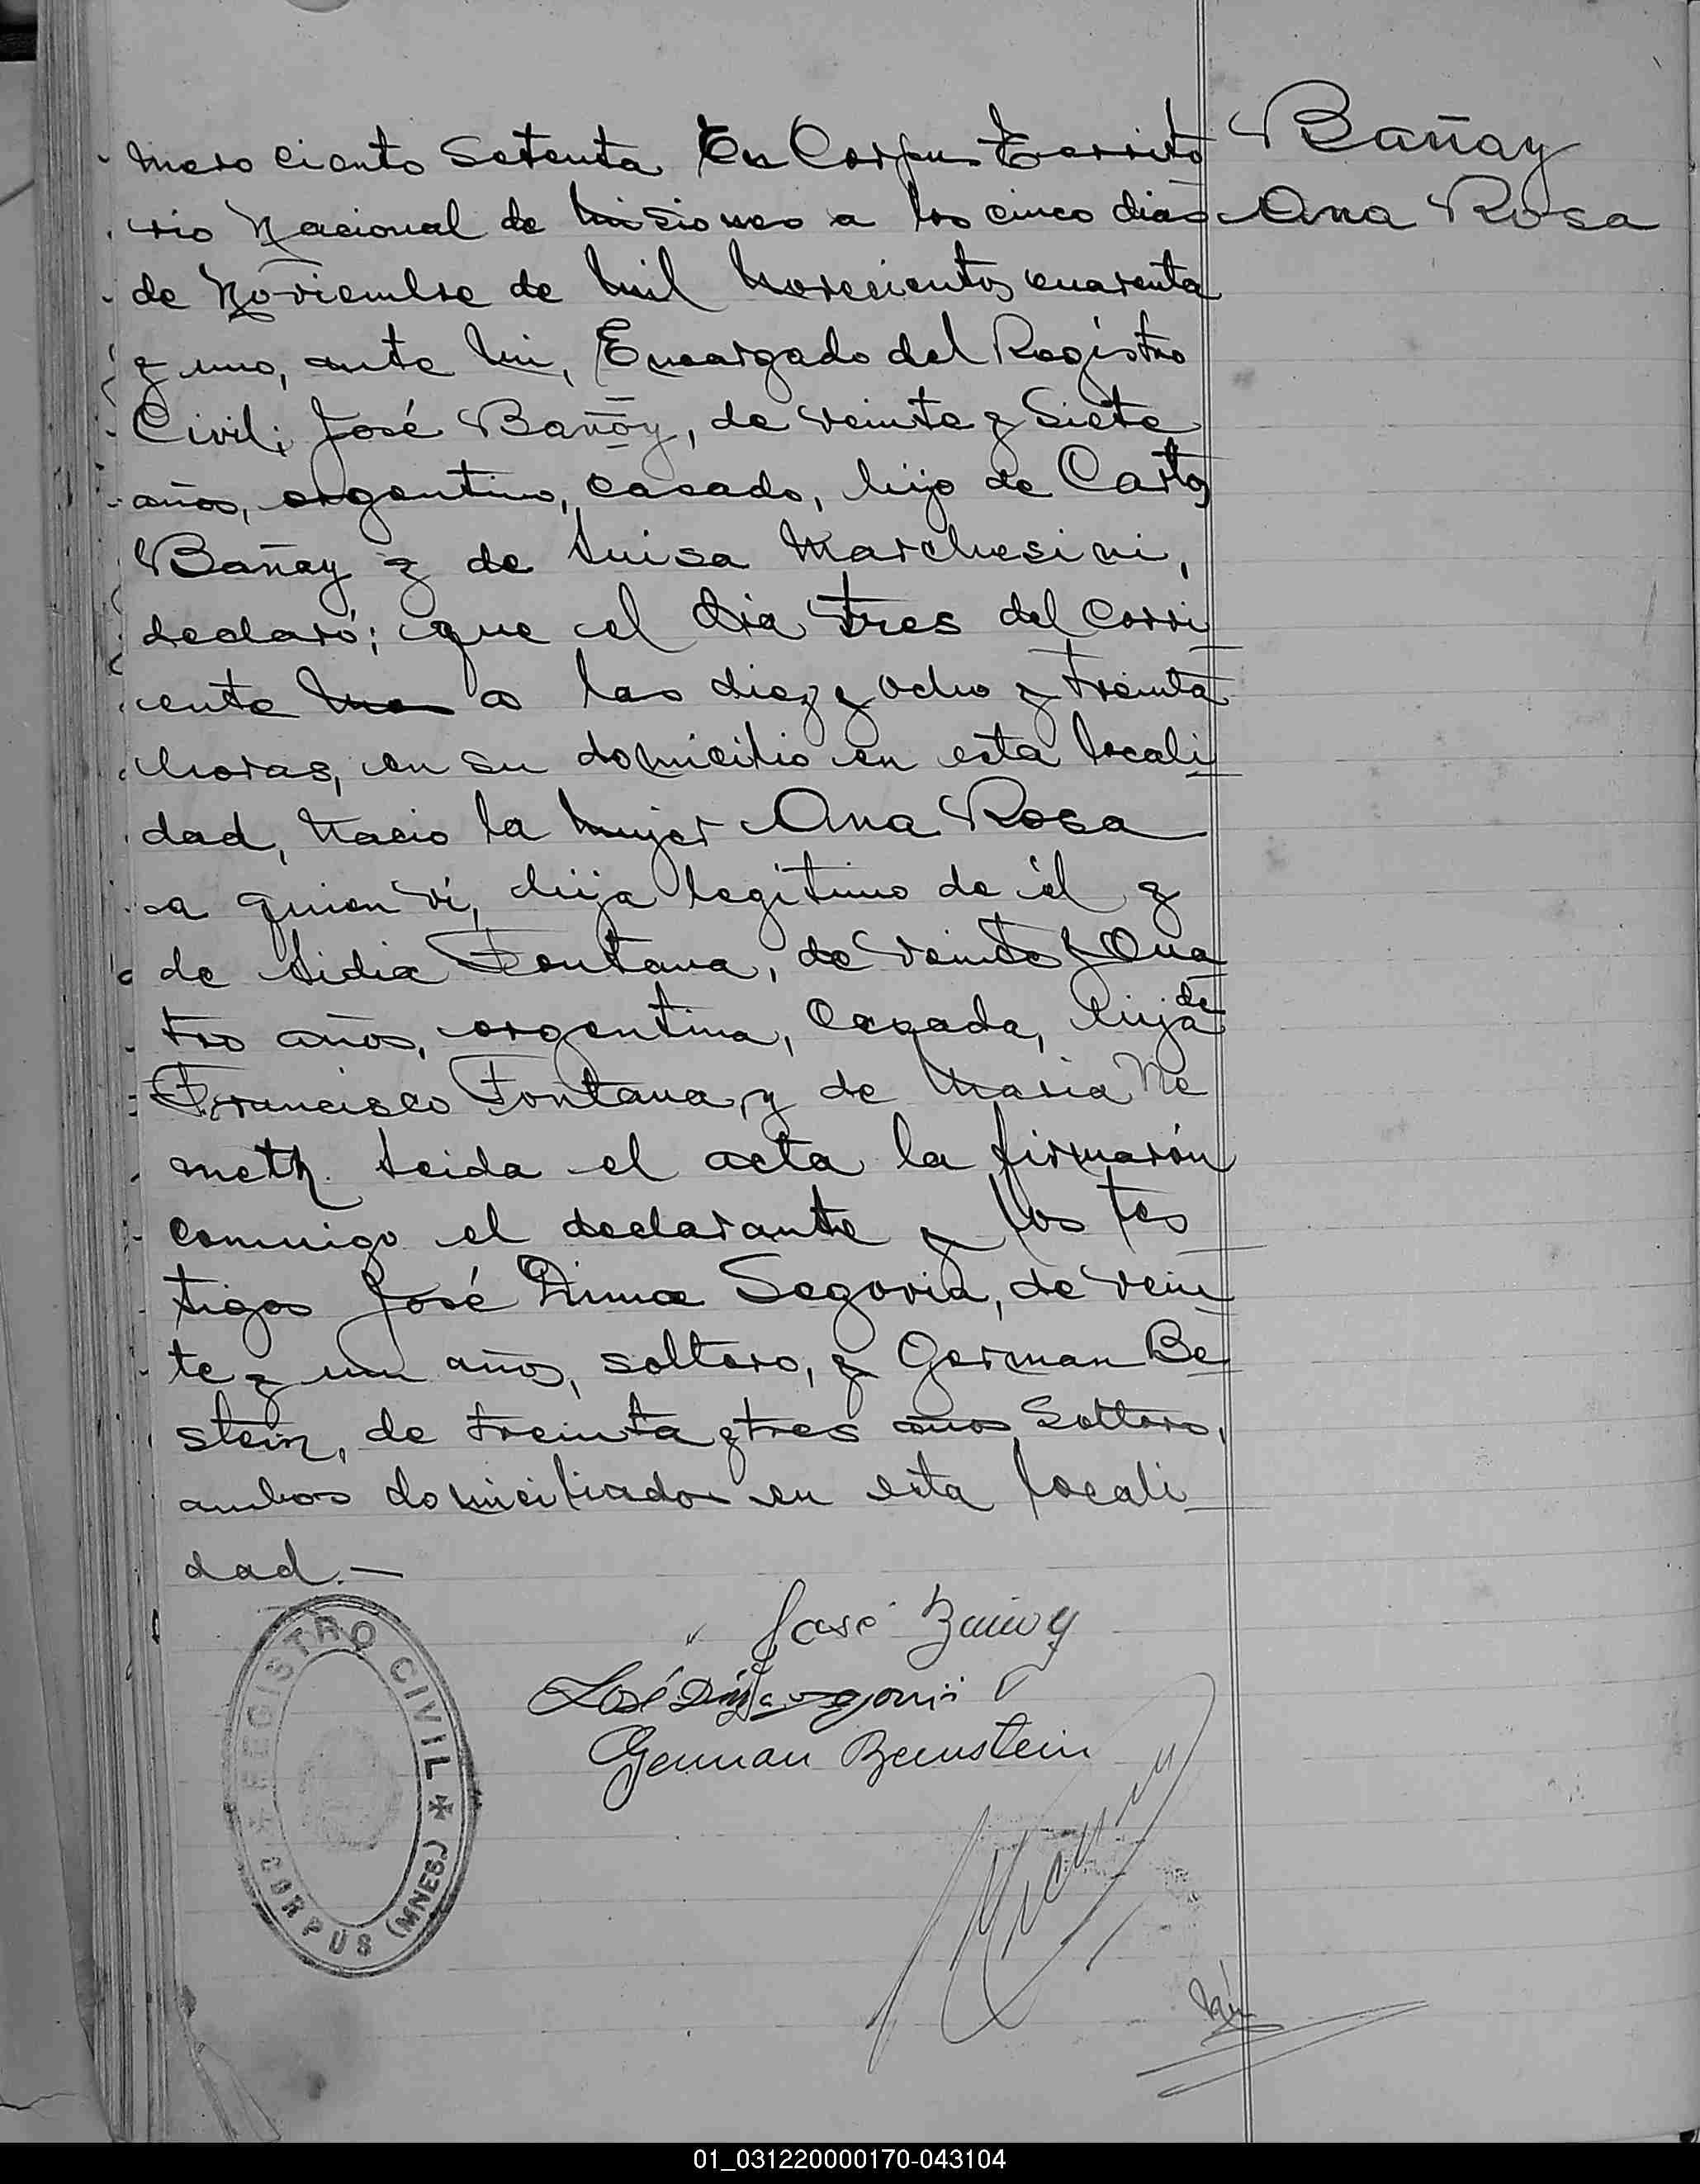 Bañay
Ana Rosa
mero ciento Setenta En Corpus Territo
rio Nacional de Misiones a los cinco dias
de Noviembre de mil novecientos cuarenta
y uno, ante mi, Encargado del Registro
Civil; José Bañay, de veinte y Siete
años, argentino, casado, hijo de Carlos
Bañay y de Luisa Marchesini,
declaró; que el dia tres del corri
ente mes a las diez y ocho y treinta
horas, en su domicilio en esta locali
dad, nacio la mujer Ana Rosa
a quien ví, hija legitimo de él y
de Lidia Fontana, de veinte y Cua
tro años, argentina, Casada, hija de
Francisco Fontana y de Maria Ne
meth. Leida el acta la firmarón
conmigo el declarante y los tes
tigos José Dima Segovia, de vein
te y un años, soltero, y German Be
stein, de treinta y tres años, Soltero,
ambos domiciliados en esta locali
dad.—
José
José
German Bernstein
REGISTRO CIVIL
CORPUS (MNES.)
01_031220000170-043104